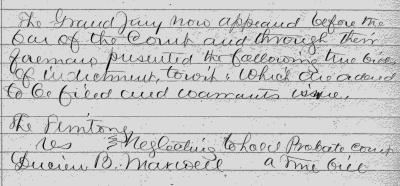 The Grand Jury now appeared before the
bar of the Court and through their
foreman presented the following true bills
of indictment, towit: which are ordered
to be filed and warrants issue.
The Territory
vs Neglecting to hold Probate court
Lucien B. Maxwell a True bill